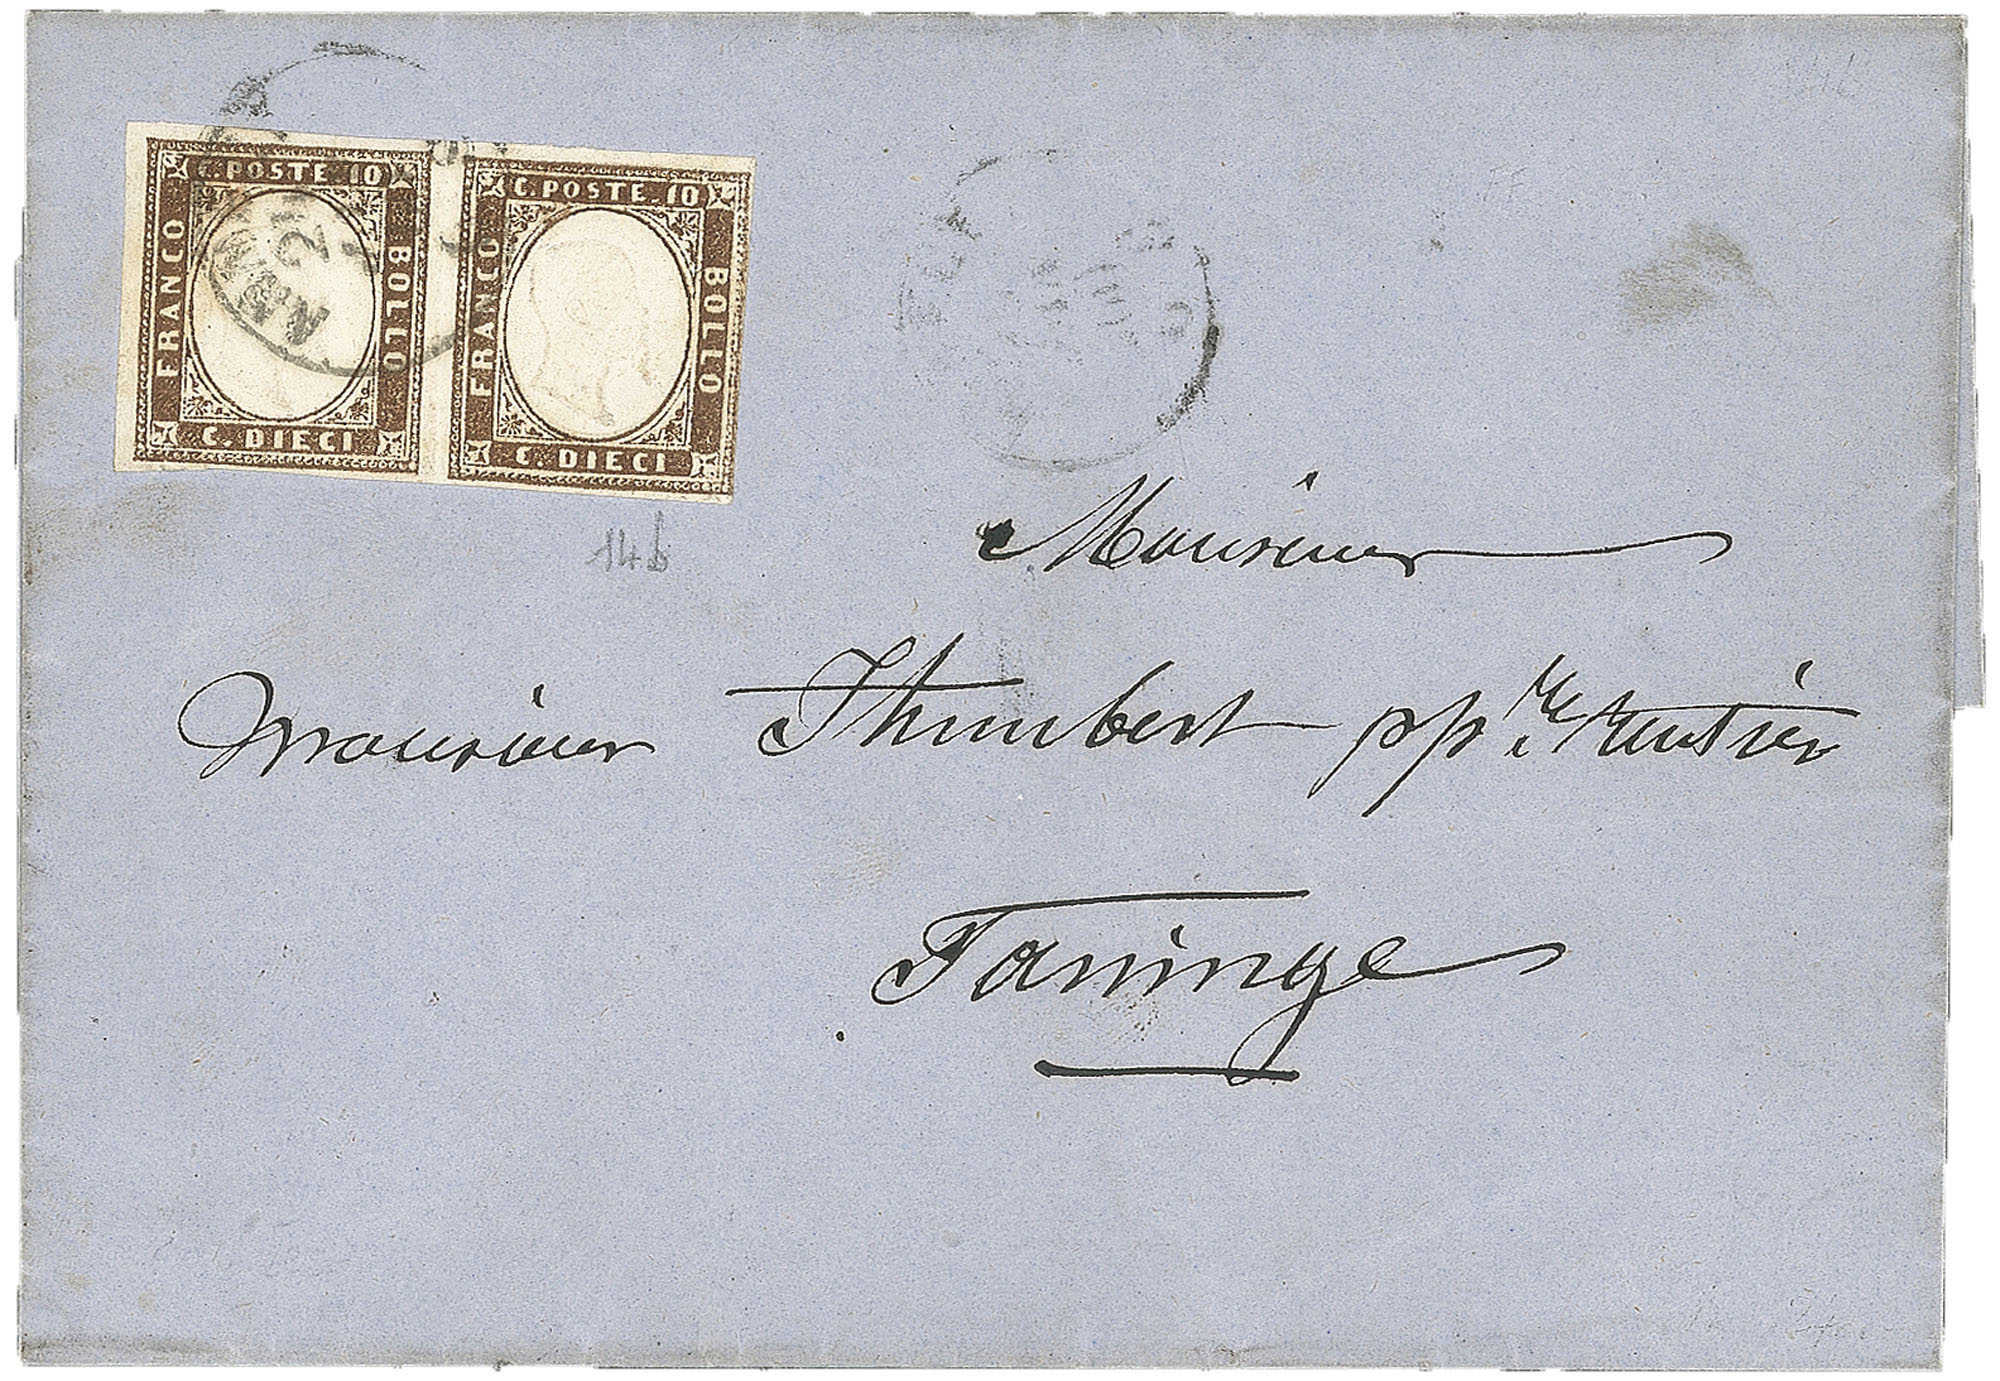 C. POSTE 10
FRANCO
BOLLO
C. DIECI
C. POSTE 10
FRANCO
BOLLO
C. DIECI
14b
Monsieur
Monsieur Humbert pp.re Rentier
Taninge